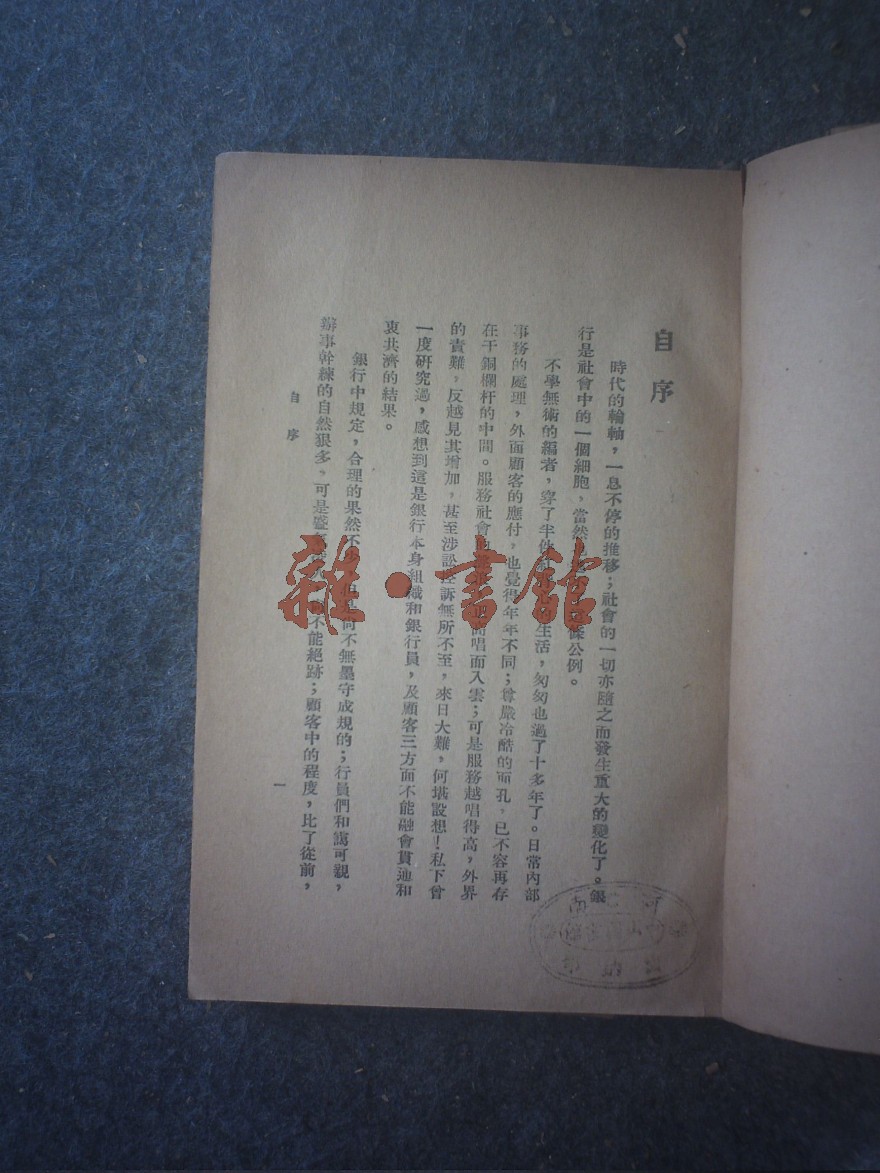 自序
時代的輪軸，一息不停的推移；社會的一切亦隨之而發生重大的變化了。銀
行是社會中的一個細胞，當然條公例。
不學無術的編者，穿了半件生活，匆匆也過了十多年了。日常內部
事務的處理，外面顧客的應付，也覺得年年不同；尊嚴冷酷的面孔，已不容再存
在于銅欄杆的中間。服務社會高唱而入雲；可是服務越唱得高，外界
的責難，反越見其增加，甚至涉訟控訴無所不至，來日大難，何堪設想！私下曾
一度研究過，感想到這是銀行本身組織和銀行員，及顧客三方面不能融會貫通和
衷共濟的結果。
銀行中規定，合理的果然不少，但是尚不無墨守成規的；行員們和藹可親，
辦事幹練的自然狠多，可是盛不能絕跡；顧客中的程度，比了從前，
自序
一
雜·書館